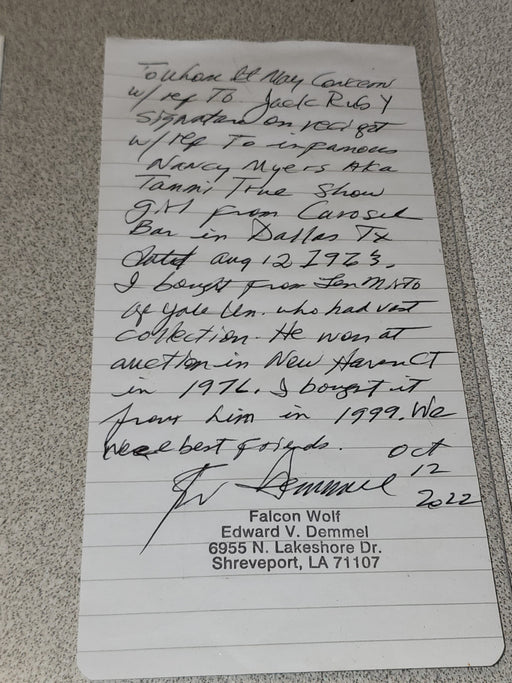 To Whom It May Concern
w/ ref To Jack Ruby
Signature on reciept
w/ ref To infamous
Nancy Myers AKA
Tammi True Show
girl from Carosel
Bar in Dallas Tx
Dated Aug 12 1963.
I bought from
of Yale Un. who had vast
collection. He won at
auction in New Haven CT
in 1976. I bought it
from him in 1999. We
were best friends. Oct
12
2022
Demmel
Falcon Wolf
Edward V. Demmel
6955 N. Lakeshore Dr.
Shreveport, LA 71107